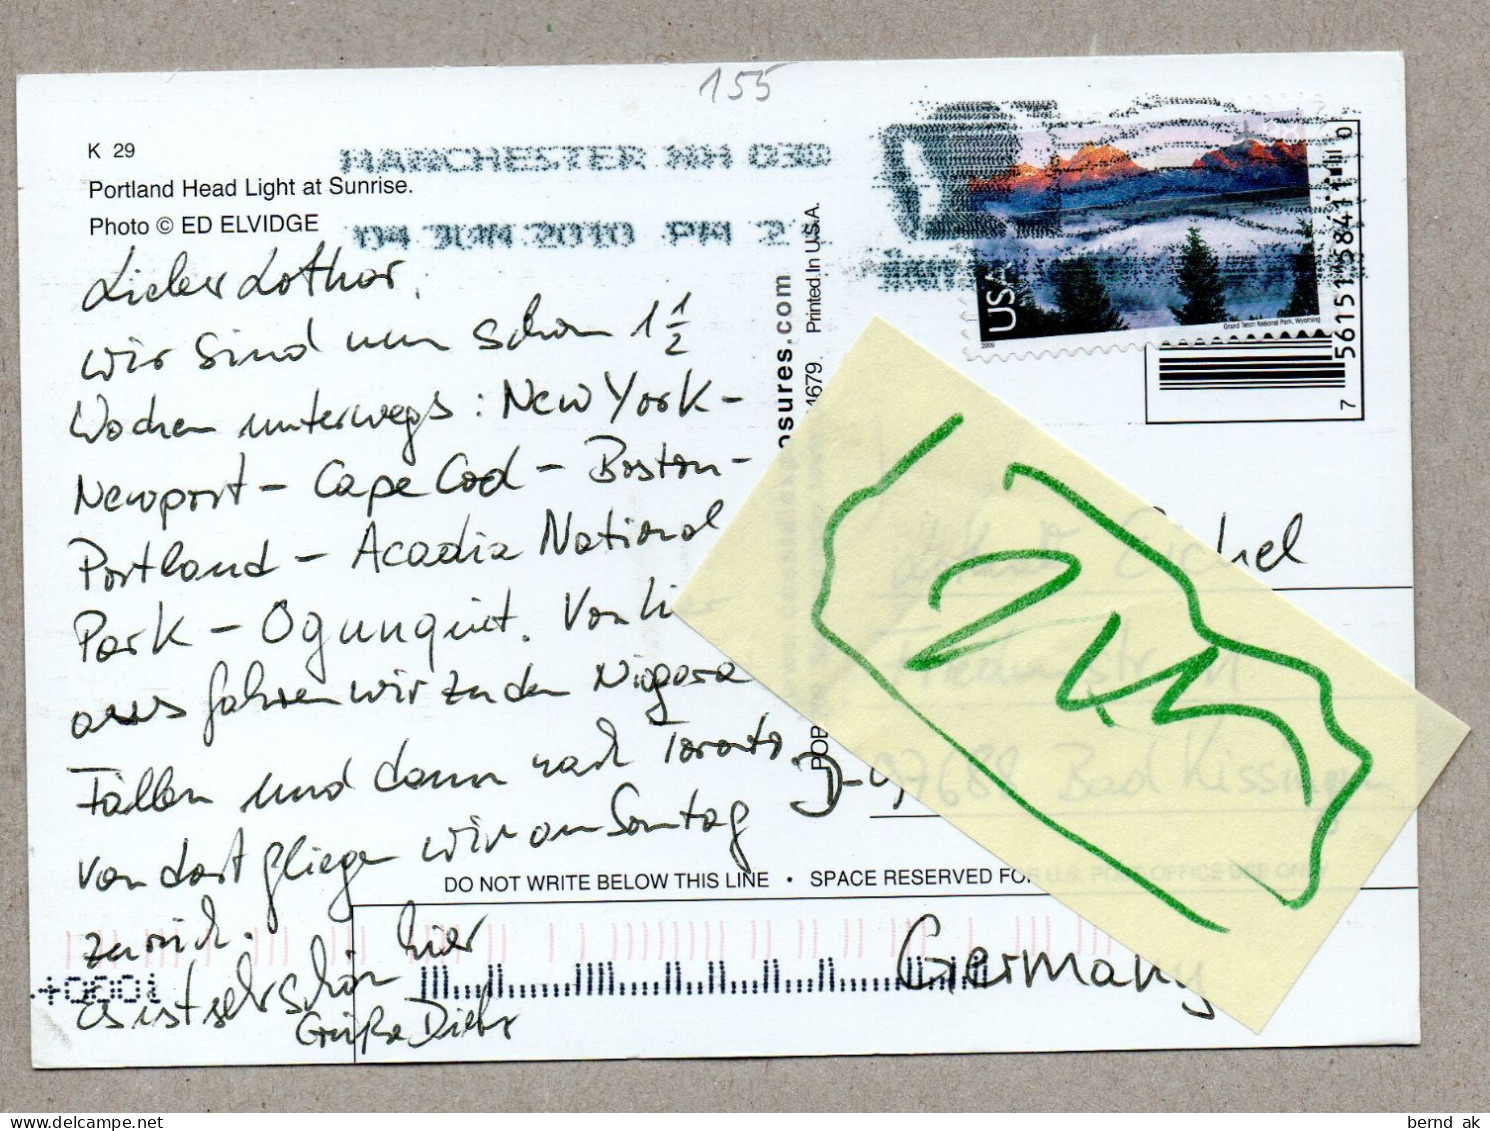 155
K 29
Portland Head Light at Sunrise.
Photo © ED ELVIDGE
MANCHESTER NH 030
04 JUN 2010 PM 2
USA
2009
Grand Teton National Park, Wyoming
7 56151 58411 0
Printed in U.S.A.
osures.com
4679
POB
Lieber Lothar,
wir sind nun schon 1 1/2
Wochen unterwegs: New York -
Newport - Cape Cod - Boston -
Portland - Acadia National
Park - Ogunquit. Von hi
aus fahren wir zu den Niagara
Fällen und dann nach Toronto
von dort fliegen wir am Sonntag
zurück.
Es ist sehr schön hier
Grüße Dieter
Eichel
D-97688 Bad Kissingen
Germany
DO NOT WRITE BELOW THIS LINE • SPACE RESERVED FOR U.S. POST OFFICE USE ONLY
bernd ak